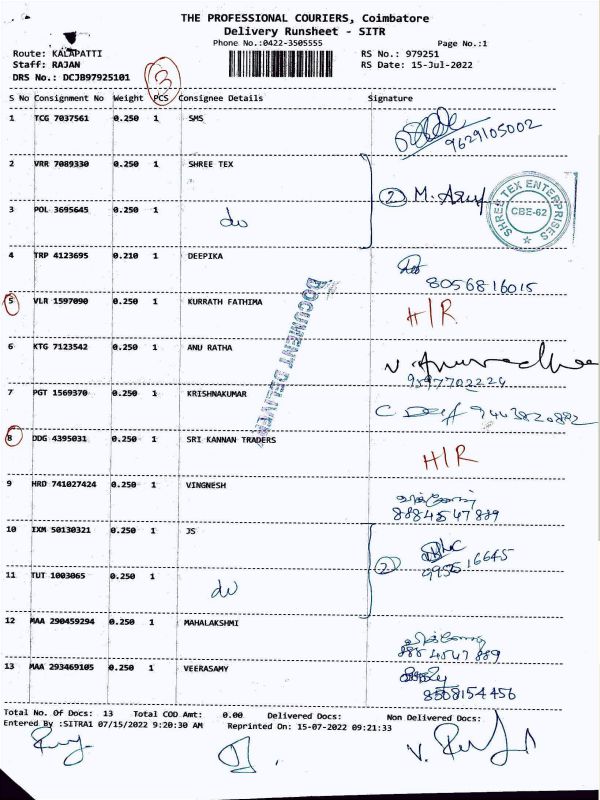 THE PROFESSIONAL COURIERS, Coimbatore
Delivery Runsheet - SITR
Phone No.:0422-3505555 Page No.:1
Route: KALAPATTI RS No.: 979251
Staff: RAJAN RS Date: 15-Jul-2022
DRS No.: DCJB97925101
3
S No Consignment No Weight PCS Consignee Details Signature
1 TCG 7037561 0.250 1 SMS
9629105002
2 VRR 7089330 0.250 1 SHREE TEX
2 M. Asuf
SHREE TEX ENTERPRISES
CBE-62
3 POL 3695645 0.250 1 do
4 TRP 4123695 0.210 1 DEEPIKA
8056816015
5 VLR 1597090 0.250 1 KURRATH FATHIMA H/R
DOCUMENT DELIVER
6 KTG 7123542 0.250 1 ANU RATHA
9597702224
7 PGT 1569370 0.250 1 KRISHNAKUMAR
8 DDG 4395031 0.250 1 SRI KANNAN TRADERS
H/R
9 HRD 741027424 0.250 1 VINGNESH
8884547889
10 IXM 50130321 0.250 1 JS
2
11 TUT 1003065 0.250 1 do
12 MAA 290459294 0.250 1 MAHALAKSHMI
13 MAA 293469105 0.250 1 VEERASAMY
8508154456
Total No. Of Docs: 13 Total COD Amt: 0.00 Delivered Docs: Non Delivered Docs:
Entered By :SITRA1 07/15/2022 9:20:30 AM Reprinted On: 15-07-2022 09:21:33